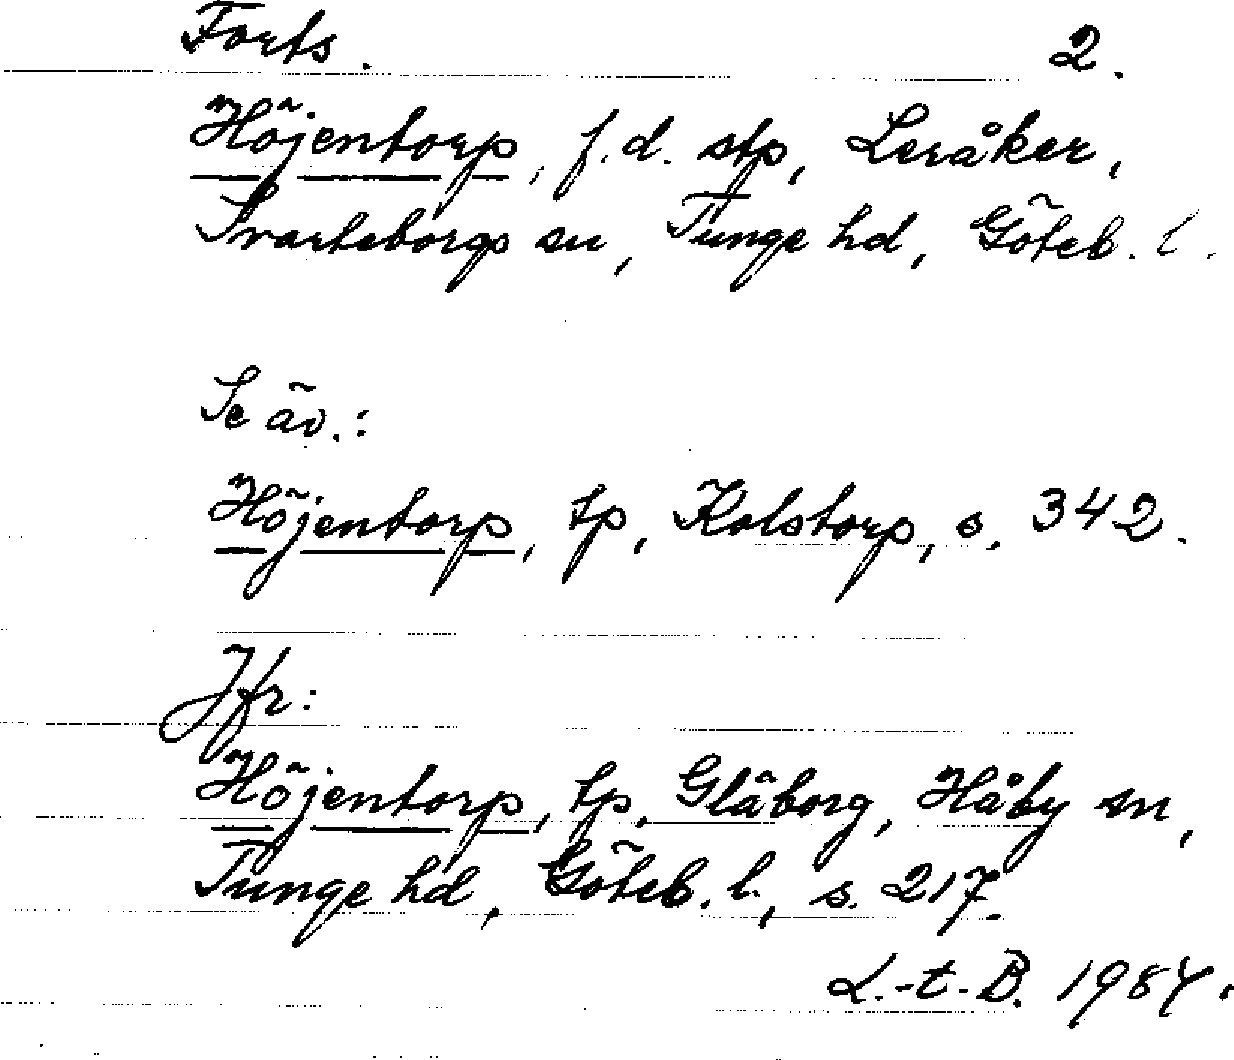 Forts. 2.
Höjentorp, f.d. stp, Leråker,
Svarteborgs sn, Tunge hd, Göteb. l.
Se äv.:
Höjentorp, tp, Kolstorp, s. 342.
Jfr:
Höjentorp, tp, Gläborg, Håby sn,
Tunge hd, Göteb. l., s. 217.
L.-t.-B. 1984.